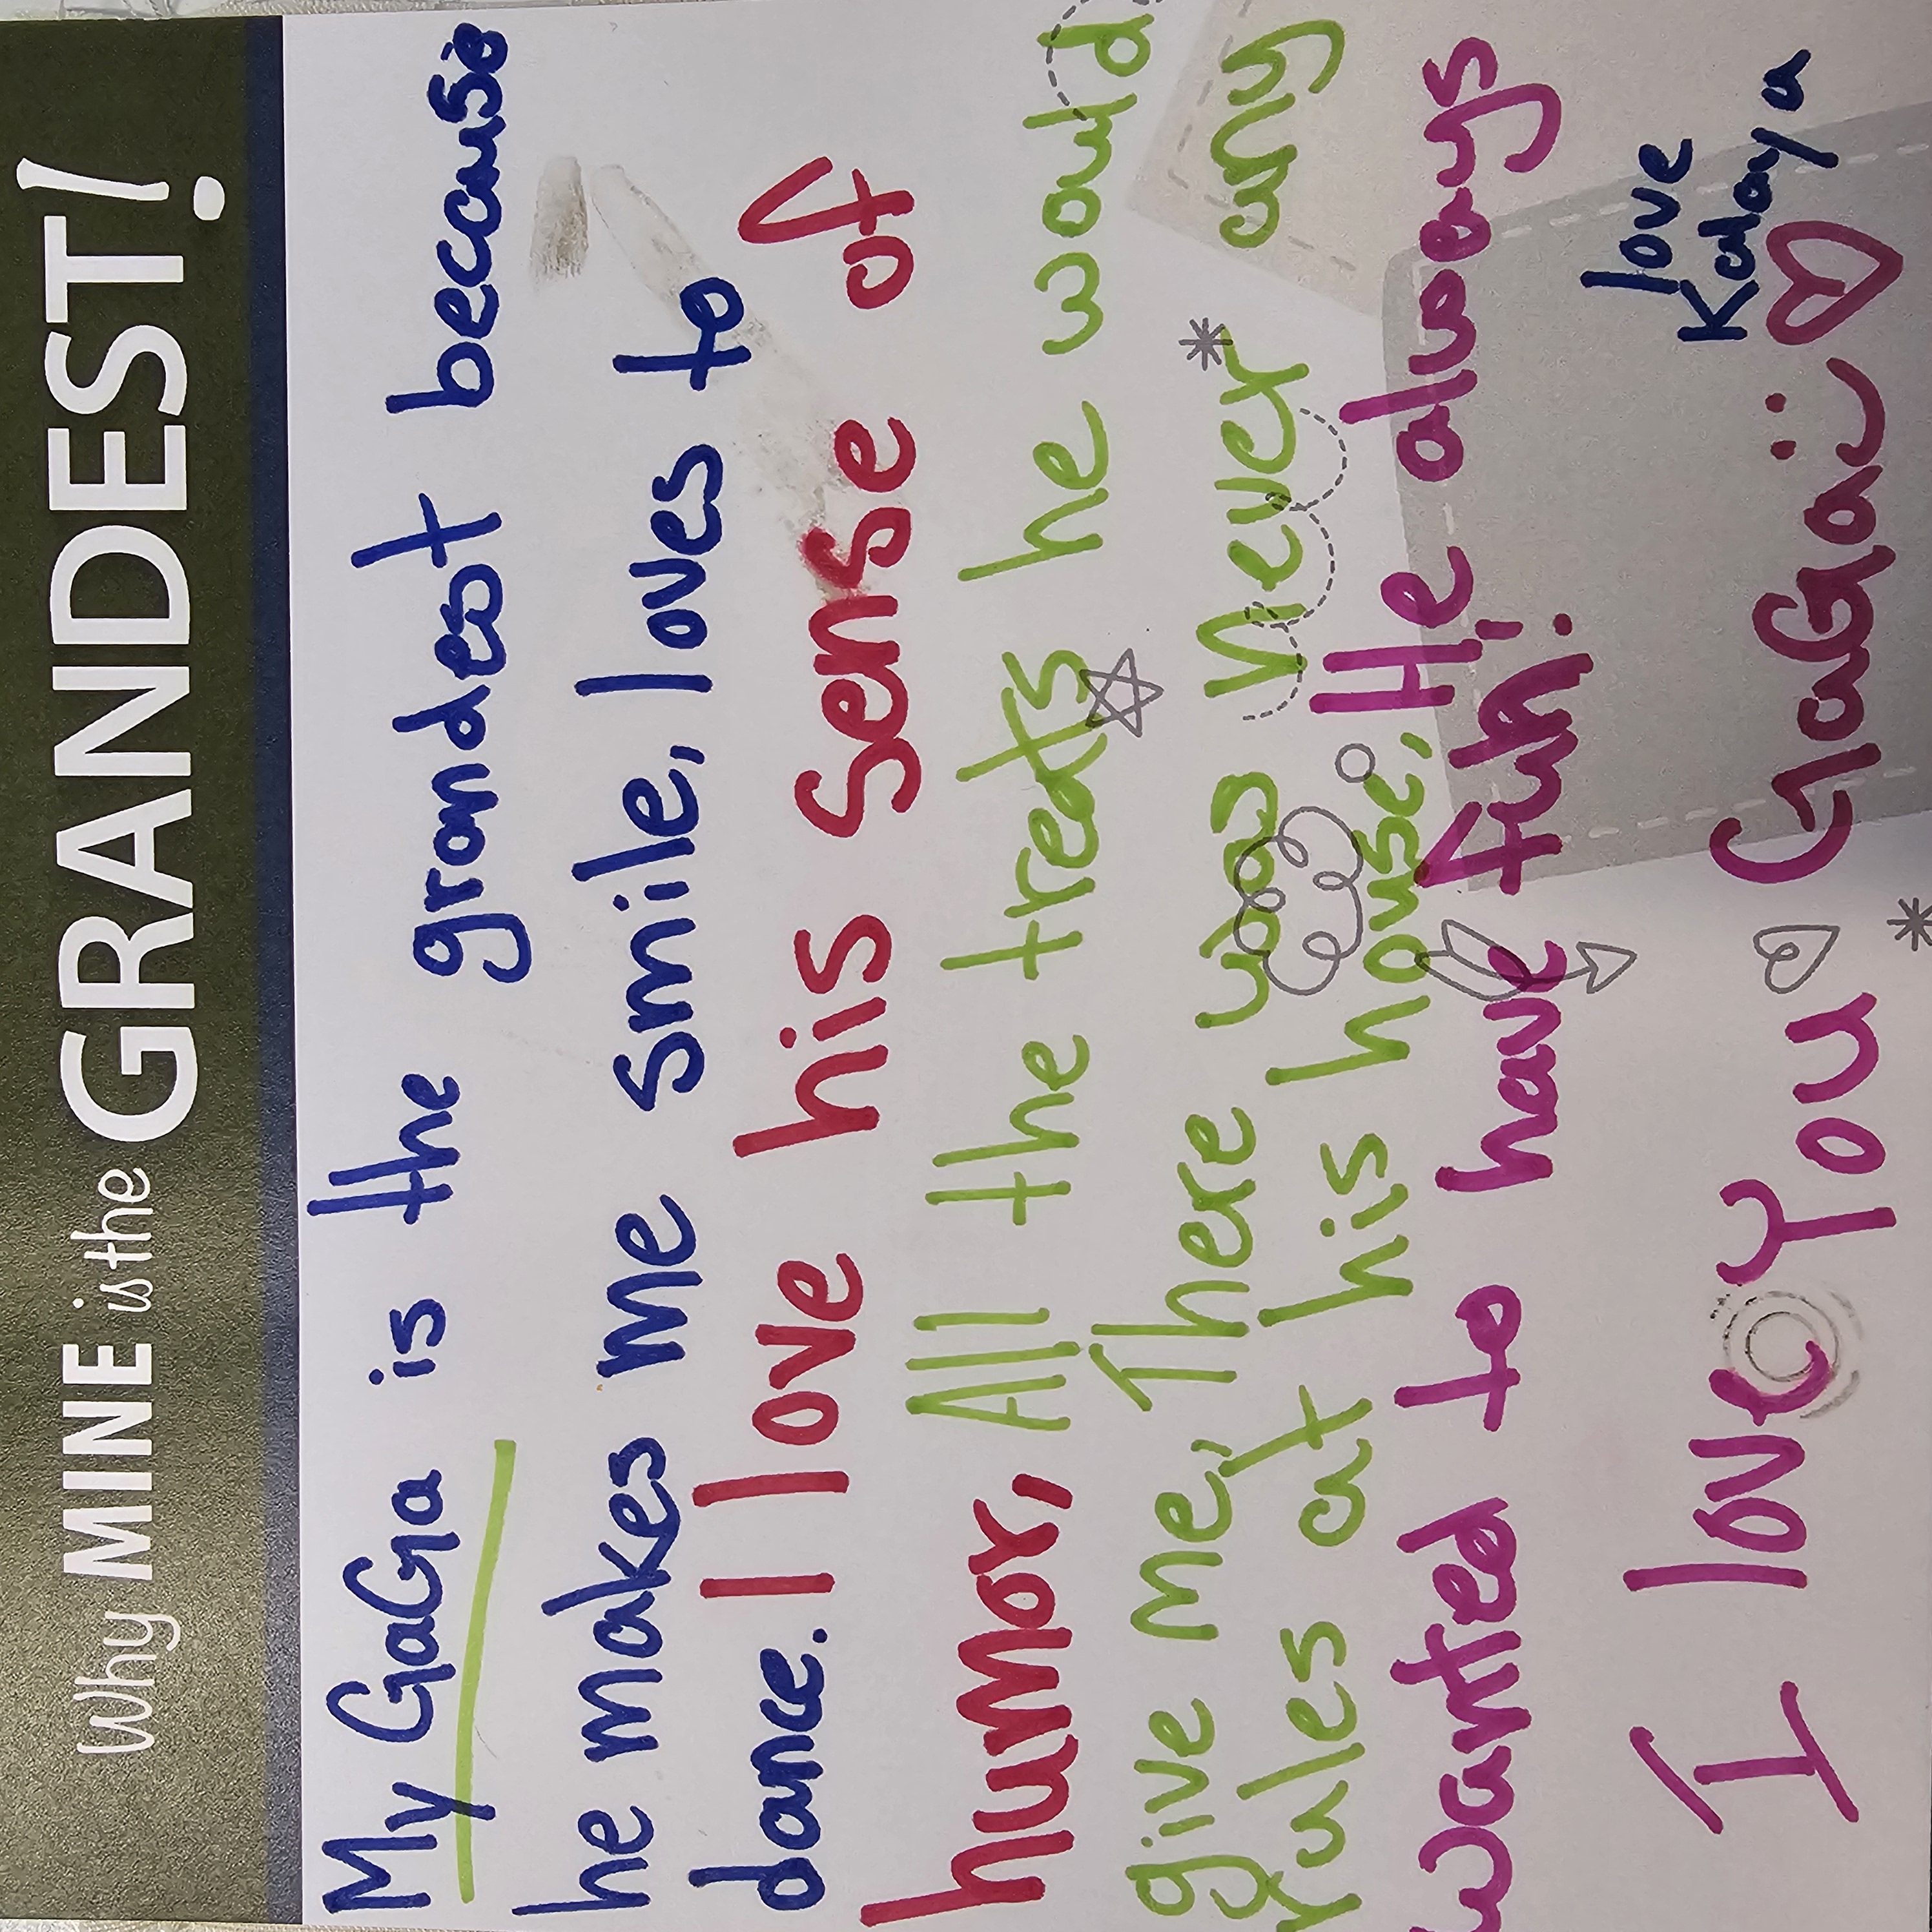 Why MINE is the GRANDEST!
My GaGa is the grandest because
he makes me smile, loves to
dance. I love his sense of
humor, All the treats he would
give me, There was never any
rules at his house, He always
wanted to have fun!
I love you GaGa
love
Kalaya